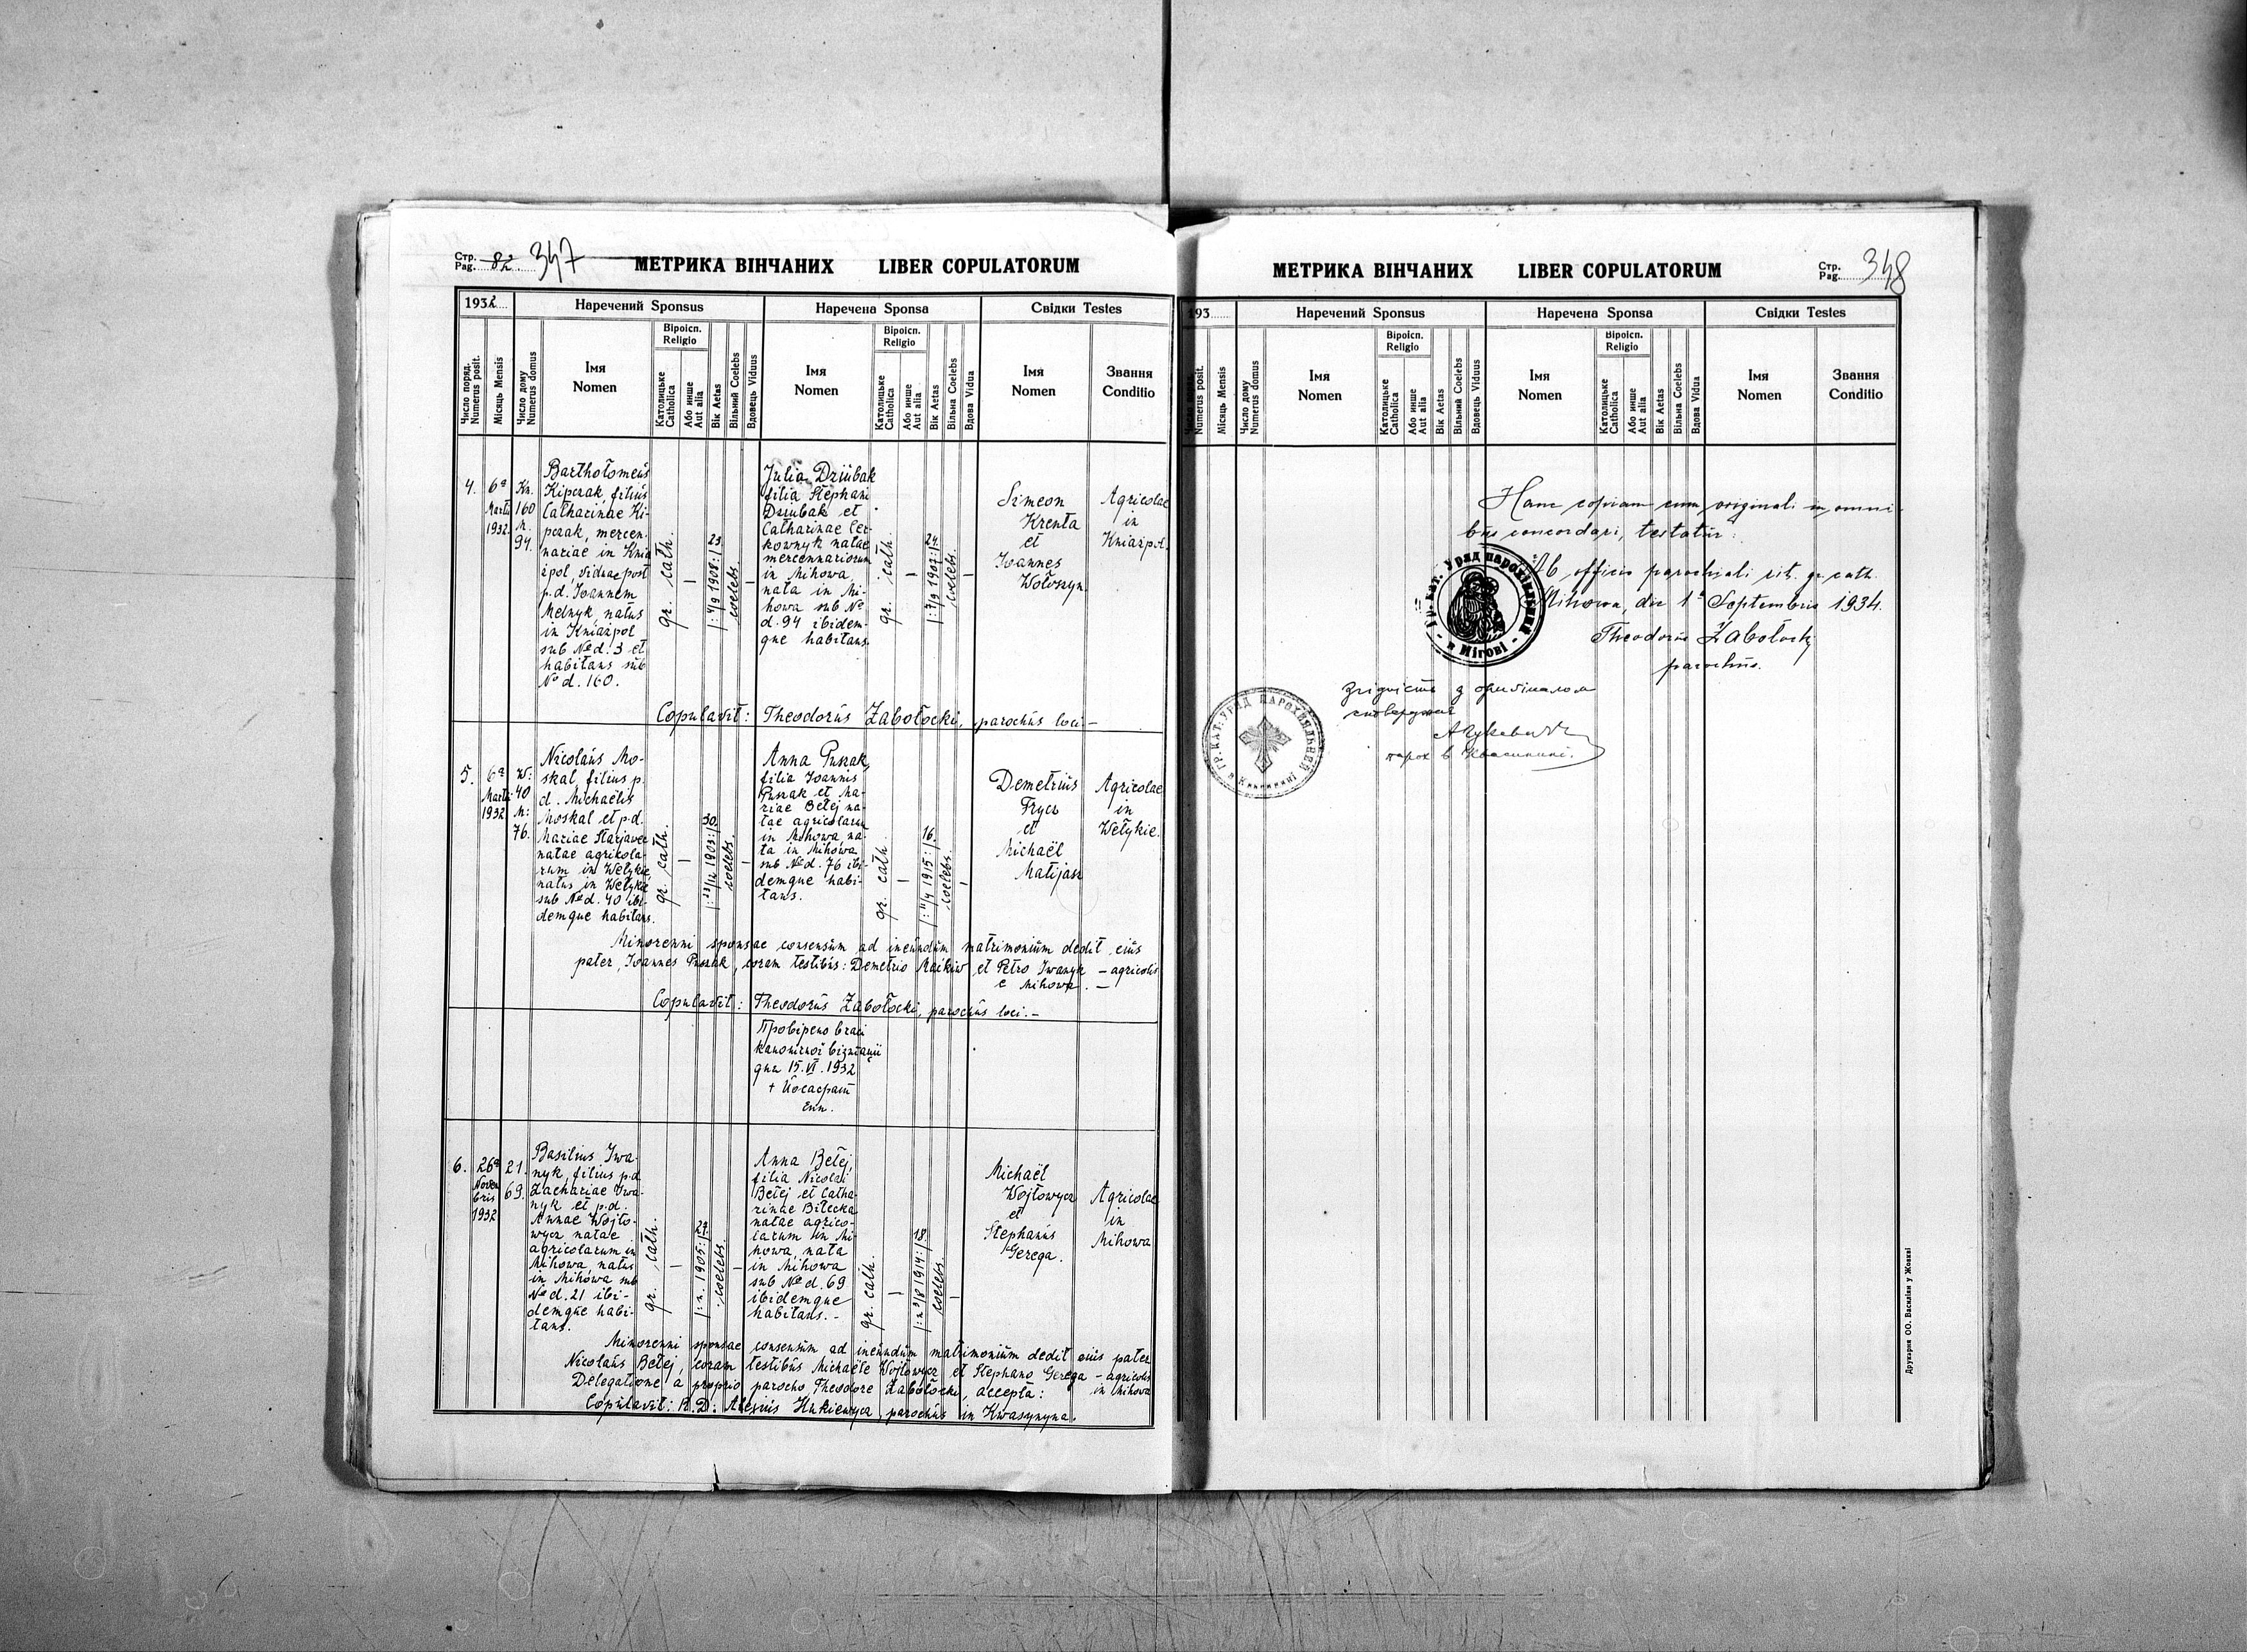 Стр. Pag. 82 347
МЕТРИКА ВІНЧАНИХ LIBER COPULATORUM
1932
Наречений Sponsus
Наречена Sponsa
Свідки Testes
Число поряд. Numerus posit.
Місяць Mensis
Число дому Numerus domus
Імя Nomen
Віроісп. Religio
Католицьке Catholica
Або инше Aut alia
Вік Aetas
Вільний Coelebs
Вдовець Viduus
Імя Nomen
Віроісп. Religio
Католицьке Catholica
Або инше Aut alia
Вік Aetas
Вільна Coelebs
Вдова Vidua
Імя Nomen
Звання Conditio
4.
6ª
Martii
1932.
Kn.
160
M.
94.
Bartholomeus
Kiprzak, filius
Catharinae Ki-
przak, mercen-
nariae in Knia
żpol, viduae post
p.d. Joannem
Melnyk, natus
in Kniażpol
sub No d. 3 et
habitans sub
No d. 160.
gr. cath.
–
23.
coelebs.
–
Julia Dziubak
filia Stephani
Dziubak et
Catharinae Cer-
kownyk natae
mercennariorum
in Mihowa,
nata in Mi-
howa sub No
d. 94 ibidem-
que habitans.
gr. cath.
–
24.
coelebs.
–
Simeon
Krenta
et
Joannes
Wołoszyn
Agricolae
in
Kniażpol.
Copulavit: Theodorus Zabołocki, parochus loci.–
5.
6ª
Martii
1932
W:
40
M:
76.
Nicolaus Mo-
skal, filius p.
d. Michaëlis
Moskal et p.d.
Mariae Starjawec
natae agrikola-
rum in Wełykie,
natus in Wełykie
sub No d. 40 ibi-
demque habitans.
gr. cath.
–
30.
coelebs.
–
Anna Puszak,
filia Joannis
Puszak et Ma-
riae Betej na-
tae agricolarum
in Mihowa, na-
ta in Mihowa
sub No d. 76 ibi-
demque habi-
tans.
gr. cath.
–
16.
coelebs.
–
Demetrius
Frycz
et
Michaël
Matijasz
Agricolae
in
Wełykie.
Minorenni sponsae consensum ad ineundum matrimonium dedit eius
pater, Joannes Puszak, coram testibus: Demetrio Raikiw et Petro Iwanyk – agricolis
e Mihowa. –
Copulavit: Theodorus Zabołocki, parochus loci.–
Провірено в часі
канонічної візитації
дня 15.VI.1932
+ Йосафат
Епп.
6.
26ª
Novem
bris
1932
21.
69.
Basilius Iwa-
nyk, filius p.d.
Zachariae Iwa-
nyk et p.d.
Annae Wojto-
wycz natae
agricolarum in
Mihowa, natus
in Mihowa sub
No d. 21 ibi-
demque habi-
tans.
gr. cath.
–
27.
coelebs.
–
Anna Betej,
filia Nicolai
Betej et Catha-
rinae Bilecka
natae agrico-
larum in Mi-
howa, nata
in Mihowa
sub No d. 69
ibidemque
habitans. –
gr. cath.
–
18.
coelebs.
–
Michaël
Wojtowycz
et
Stephanus
Gerega.
Agricolae
in
Mihowa
Minorenni sponsae consensum ad ineundum matrimonium dedit eius pater
Nicolaus Betej, coram testibus Michaële Wojtowycz et Stephano Gerega – agricolis
in Mihowa
Delegatione a proprio parocho, Theodore Zabołocki, accepta:
Copulavit: R.D. Alexius Hukiewycz, parochus in Kwasynyna.
МЕТРИКА ВІНЧАНИХ LIBER COPULATORUM
Стр. Pag. 348
193
Наречений Sponsus
Наречена Sponsa
Свідки Testes
Numerus posit.
Місяць Mensis
Число дому Numerus domus
Імя Nomen
Віроісп. Religio
Католицьке Catholica
Або инше Aut alia
Вік Aetas
Вільний Coelebs
Вдовець Viduus
Імя Nomen
Віроісп. Religio
Католицьке Catholica
Або инше Aut alia
Вік Aetas
Вільна Coelebs
Вдова Vidua
Імя Nomen
Звання Conditio
Hanc copiam cum originali in omni-
bus concordari, testatur:
Ab officio parochiali rit. gr. cath.
Mihowa, die 1ª Septembris 1934.
Theodorus Zabołocki
parochus.
Гр. кат. Уряд парохіяльний
в Мігові
Згідність з оригіналом
стверджує
парох в Квасинині.
ГР. КАТ. УРЯД ПАРОХІЯЛЬНИЙ
в Квасинині
Друкарня ОО. Василіян у Жовкві